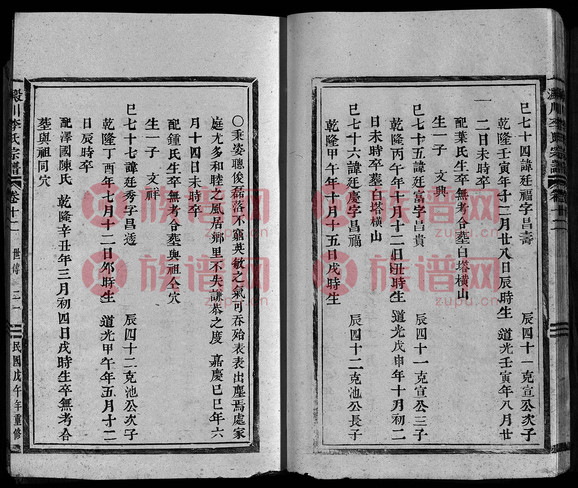 巳七十四諱廷福字昌壽 辰四十一克宣公次子
乾隆壬寅年十二月廿八日辰時生 道光壬寅年八月廿
二日未時卒
配葉氏生卒無考合墓白塔橫山
生一子 文興
巳七十五諱廷富字昌貴 辰四十一克宣公三子
乾隆丙午年十月十二日丑時生 道光戊申年十月初二
日未時卒墓白塔橫山
巳七十六諱廷慶字昌福 辰四十二克池公長子
乾隆甲午年十月十五日戌時生
〇秉姿聰俊磊落不窮英敏之氣可吞殆表表出塵焉處家
庭尤多和睦之風居鄉里不失謙恭之度 嘉慶己巳年六
月十四日未時卒
配鍾氏生卒無考合墓與祖仝穴
生一子 文祥
巳七十七諱廷秀字昌透 辰四十二克池公次子
乾隆丁酉年七月十二日卯時生 道光甲午年五月十二
日辰時卒
配澤國陳氏 乾隆辛丑年三月初四日戌時生卒無考合
墓與祖同穴
澱川李氏宗譜 卷十二 世傳 二一 民國戊午年重修
族谱网
zupu.cn
族谱网
zupu.cn